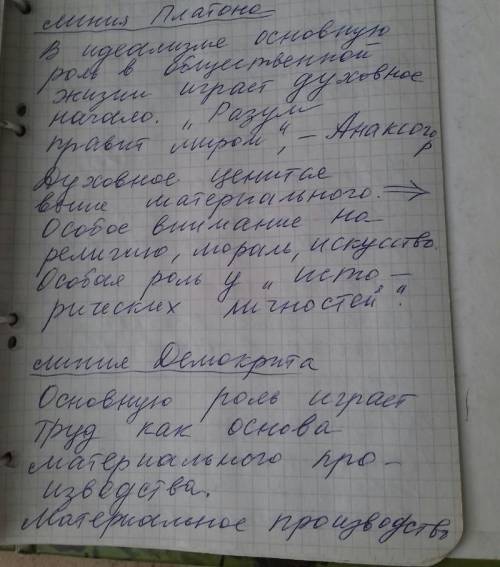 линия Платона
В идеализме основную
роль в общественной
жизни играет духовное
начало. „Разум
правит миром“, – Анаксагор
Духовное ценится
выше материального. ⇒
Особое внимание на
религию, мораль, искусство.
Особая роль у „исто–
рических личностей“.
линия Демокрита
Основную роль играет
труд как основа
материального про–
изводства.
Материальное производство